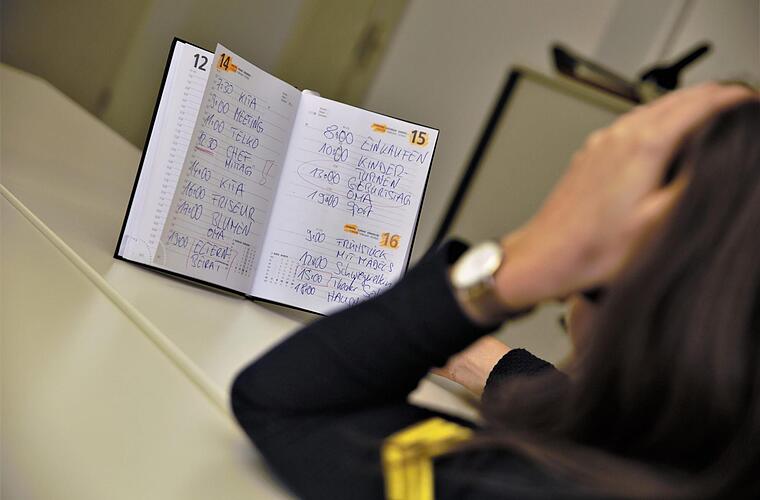 12
14
7:30 KITA
9:00 MEETING
11:00 TELKO
CHEF
MITTAG!
14:00 KITA
16:00 FRISEUR
17:00 BLUMEN
OMA
19:00 ELTERN-
BEIRAT
15
8:00 EINKAUFEN
10:00 KINDER-
TURNEN
13:00 GEBURTSTAG
OMA
19:00 Sport
16
9:00 FRÜHSTÜCK
MIT MÄDELS
12:00
15:00 Theater
18:00